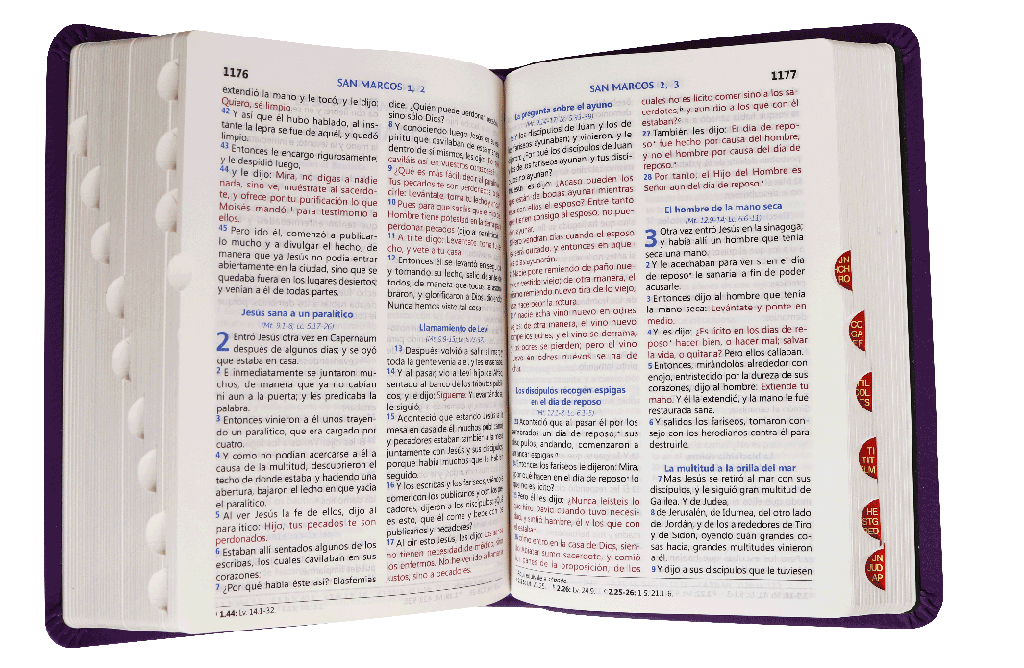 1176
SAN MARCOS 1, 2
extendió la mano y le tocó, y le dijo:
Quiero, sé limpio.
42 Y así que él hubo hablado, al ins-
tante la lepra se fue de aquél, y quedó
limpio.
43 Entonces le encargó rigurosamente,
y le despidió luego,
44 y le dijo: Mira, no digas a nadie
nada, sino ve, muéstrate al sacerdo-
te, y ofrece por tu purificación lo que
Moisés mandó, para testimonio a
ellos.
45 Pero ido él, comenzó a publicar-
lo mucho y a divulgar el hecho, de
manera que ya Jesús no podía entrar
abiertamente en la ciudad, sino que se
quedaba fuera en los lugares desiertos;
y venían a él de todas partes.
Jesús sana a un paralítico
(Mt. 9.1-8; Lc. 5.17-26)
2 Entró Jesús otra vez en Capernaum
después de algunos días; y se oyó
que estaba en casa.
2 E inmediatamente se juntaron mu-
chos, de manera que ya no cabían
ni aun a la puerta; y les predicaba la
palabra.
3 Entonces vinieron a él unos trayen-
do un paralítico, que era cargado por
cuatro.
4 Y como no podían acercarse a él a
causa de la multitud, descubrieron el
techo de donde estaba, y haciendo una
abertura, bajaron el lecho en que yacía
el paralítico.
5 Al ver Jesús la fe de ellos, dijo al
paralítico: Hijo, tus pecados te son
perdonados.
6 Estaban allí sentados algunos de los
escribas, los cuales cavilaban en sus
corazones:
7 ¿Por qué habla éste así? Blasfemias
1.44: Lv. 14.1-32.
dice. ¿Quién puede perdonar
sino sólo Dios?
8 Y conociendo luego Jesús en su es-
píritu que cavilaban de esta
dentro de sí mismos, les dijo:
caviláis así en vuestros corazones?
9 ¿Qué es más fácil, decir al paralítico:
Tus pecados te son perdonados, o de-
cirle: Levántate, toma tu lecho y
10 Pues para que sepáis que el Hijo del
Hombre tiene potestad en la tierra para
perdonar pecados (dijo al paralítico):
11 A ti te digo: Levántate, toma tu le-
cho, y vete a tu casa.
12 Entonces él se levantó enseguida,
y tomando su lecho, salió delante de
todos, de manera que todos se asom-
braron, y glorificaron a Dios, diciendo:
Nunca hemos visto tal cosa.
Llamamiento de Leví
(Mt. 9.9-13; Lc. 5.27-32)
13 Después volvió a salir al mar; y
toda la gente venía a él, y les enseñaba.
14 Y al pasar, vio a Leví hijo de Alfeo,
sentado al banco de los tributos públi-
cos, y le dijo: Sígueme. Y levantándose,
le siguió.
15 Aconteció que estando Jesús a la
mesa en casa de él, muchos publicanos
y pecadores estaban también a la mesa
juntamente con Jesús y sus discípulos;
porque había muchos que le habían
seguido.
16 Y los escribas y los fariseos, viéndole
comer con los publicanos y con los pe-
cadores, dijeron a los discípulos: ¿Qué
es esto, que él come y bebe con los
publicanos y pecadores?
17 Al oír esto Jesús, les dijo: Los sanos
no tienen necesidad de médico, sino
los enfermos. No he venido a llamar a
justos, sino a pecadores.
SAN MARCOS 2, 3
1177
La pregunta sobre el ayuno
(Mt. 9.14-17; Lc. 5.33-39)
los discípulos de Juan y los de
fariseos ayunaban; y vinieron, y le
¿Por qué los discípulos de Juan
los de los fariseos ayunan, y tus discí-
no ayunan?
les dijo: ¿Acaso pueden los
que están de bodas ayunar mientras
con ellos el esposo? Entre tanto
tienen consigo al esposo, no pue-
ayunar.
vendrán días cuando el esposo
será quitado, y entonces en aque-
días ayunarán.
Nadie pone remiendo de paño nue-
vestido viejo; de otra manera, el
mismo remiendo nuevo tira de lo viejo,
se hace peor la rotura.
nadie echa vino nuevo en odres
de otra manera, el vino nuevo
rompe los odres, y el vino se derrama,
los odres se pierden; pero el vino
nuevo en odres nuevos se ha de
Los discípulos recogen espigas
en el día de reposo
(Mt. 12.1-8; Lc. 6.1-5)
Aconteció que al pasar él por los
sembrados un día de reposo,* sus
discípulos, andando, comenzaron a
arrancar espigas.
Entonces los fariseos le dijeron: Mira,
¿por qué hacen en el día de reposo* lo
que no es lícito?
Pero él les dijo: ¿Nunca leísteis lo
que hizo David cuando tuvo necesi-
dad, y sintió hambre, él y los que con
él estaban;
cómo entró en la casa de Dios, sien-
do Abiatar sumo sacerdote, y comió
los panes de la proposición, de los
2.26: Lv. 24.9. 2.25-26: 1 S. 21.1-6.
cuales no es lícito comer sino a los sa-
cerdotes, y aun dio a los que con él
estaban?
27 También les dijo: El día de repo-
so* fue hecho por causa del hombre,
y no el hombre por causa del día de
reposo.*
28 Por tanto, el Hijo del Hombre es
Señor aun del día de reposo.*
El hombre de la mano seca
(Mt. 12.9-14; Lc. 6.6-11)
3 Otra vez entró Jesús en la sinagoga;
y había allí un hombre que tenía
seca una mano.
2 Y le acechaban para ver si en el día
de reposo* le sanaría, a fin de poder
acusarle.
3 Entonces dijo al hombre que tenía
la mano seca: Levántate y ponte en
medio.
4 Y les dijo: ¿Es lícito en los días de re-
poso* hacer bien, o hacer mal; salvar
la vida, o quitarla? Pero ellos callaban.
5 Entonces, mirándolos alrededor con
enojo, entristecido por la dureza de sus
corazones, dijo al hombre: Extiende tu
mano. Y él la extendió, y la mano le fue
restaurada sana.
6 Y salidos los fariseos, tomaron con-
sejo con los herodianos contra él para
destruirle.
La multitud a la orilla del mar
7 Mas Jesús se retiró al mar con sus
discípulos, y le siguió gran multitud de
Galilea. Y de Judea,
8 de Jerusalén, de Idumea, del otro lado
de Jordán, y de los alrededores de Tiro
y de Sidón, oyendo cuán grandes co-
sas hacía, grandes multitudes vinieron
a él.
9 Y dijo a sus discípulos que le tuviesen
JN
HCH
RO
CC
GA
EF
TIL
COL
TS
TI
TIT
FLM
HE
STG
PED
JN
JUD
AP